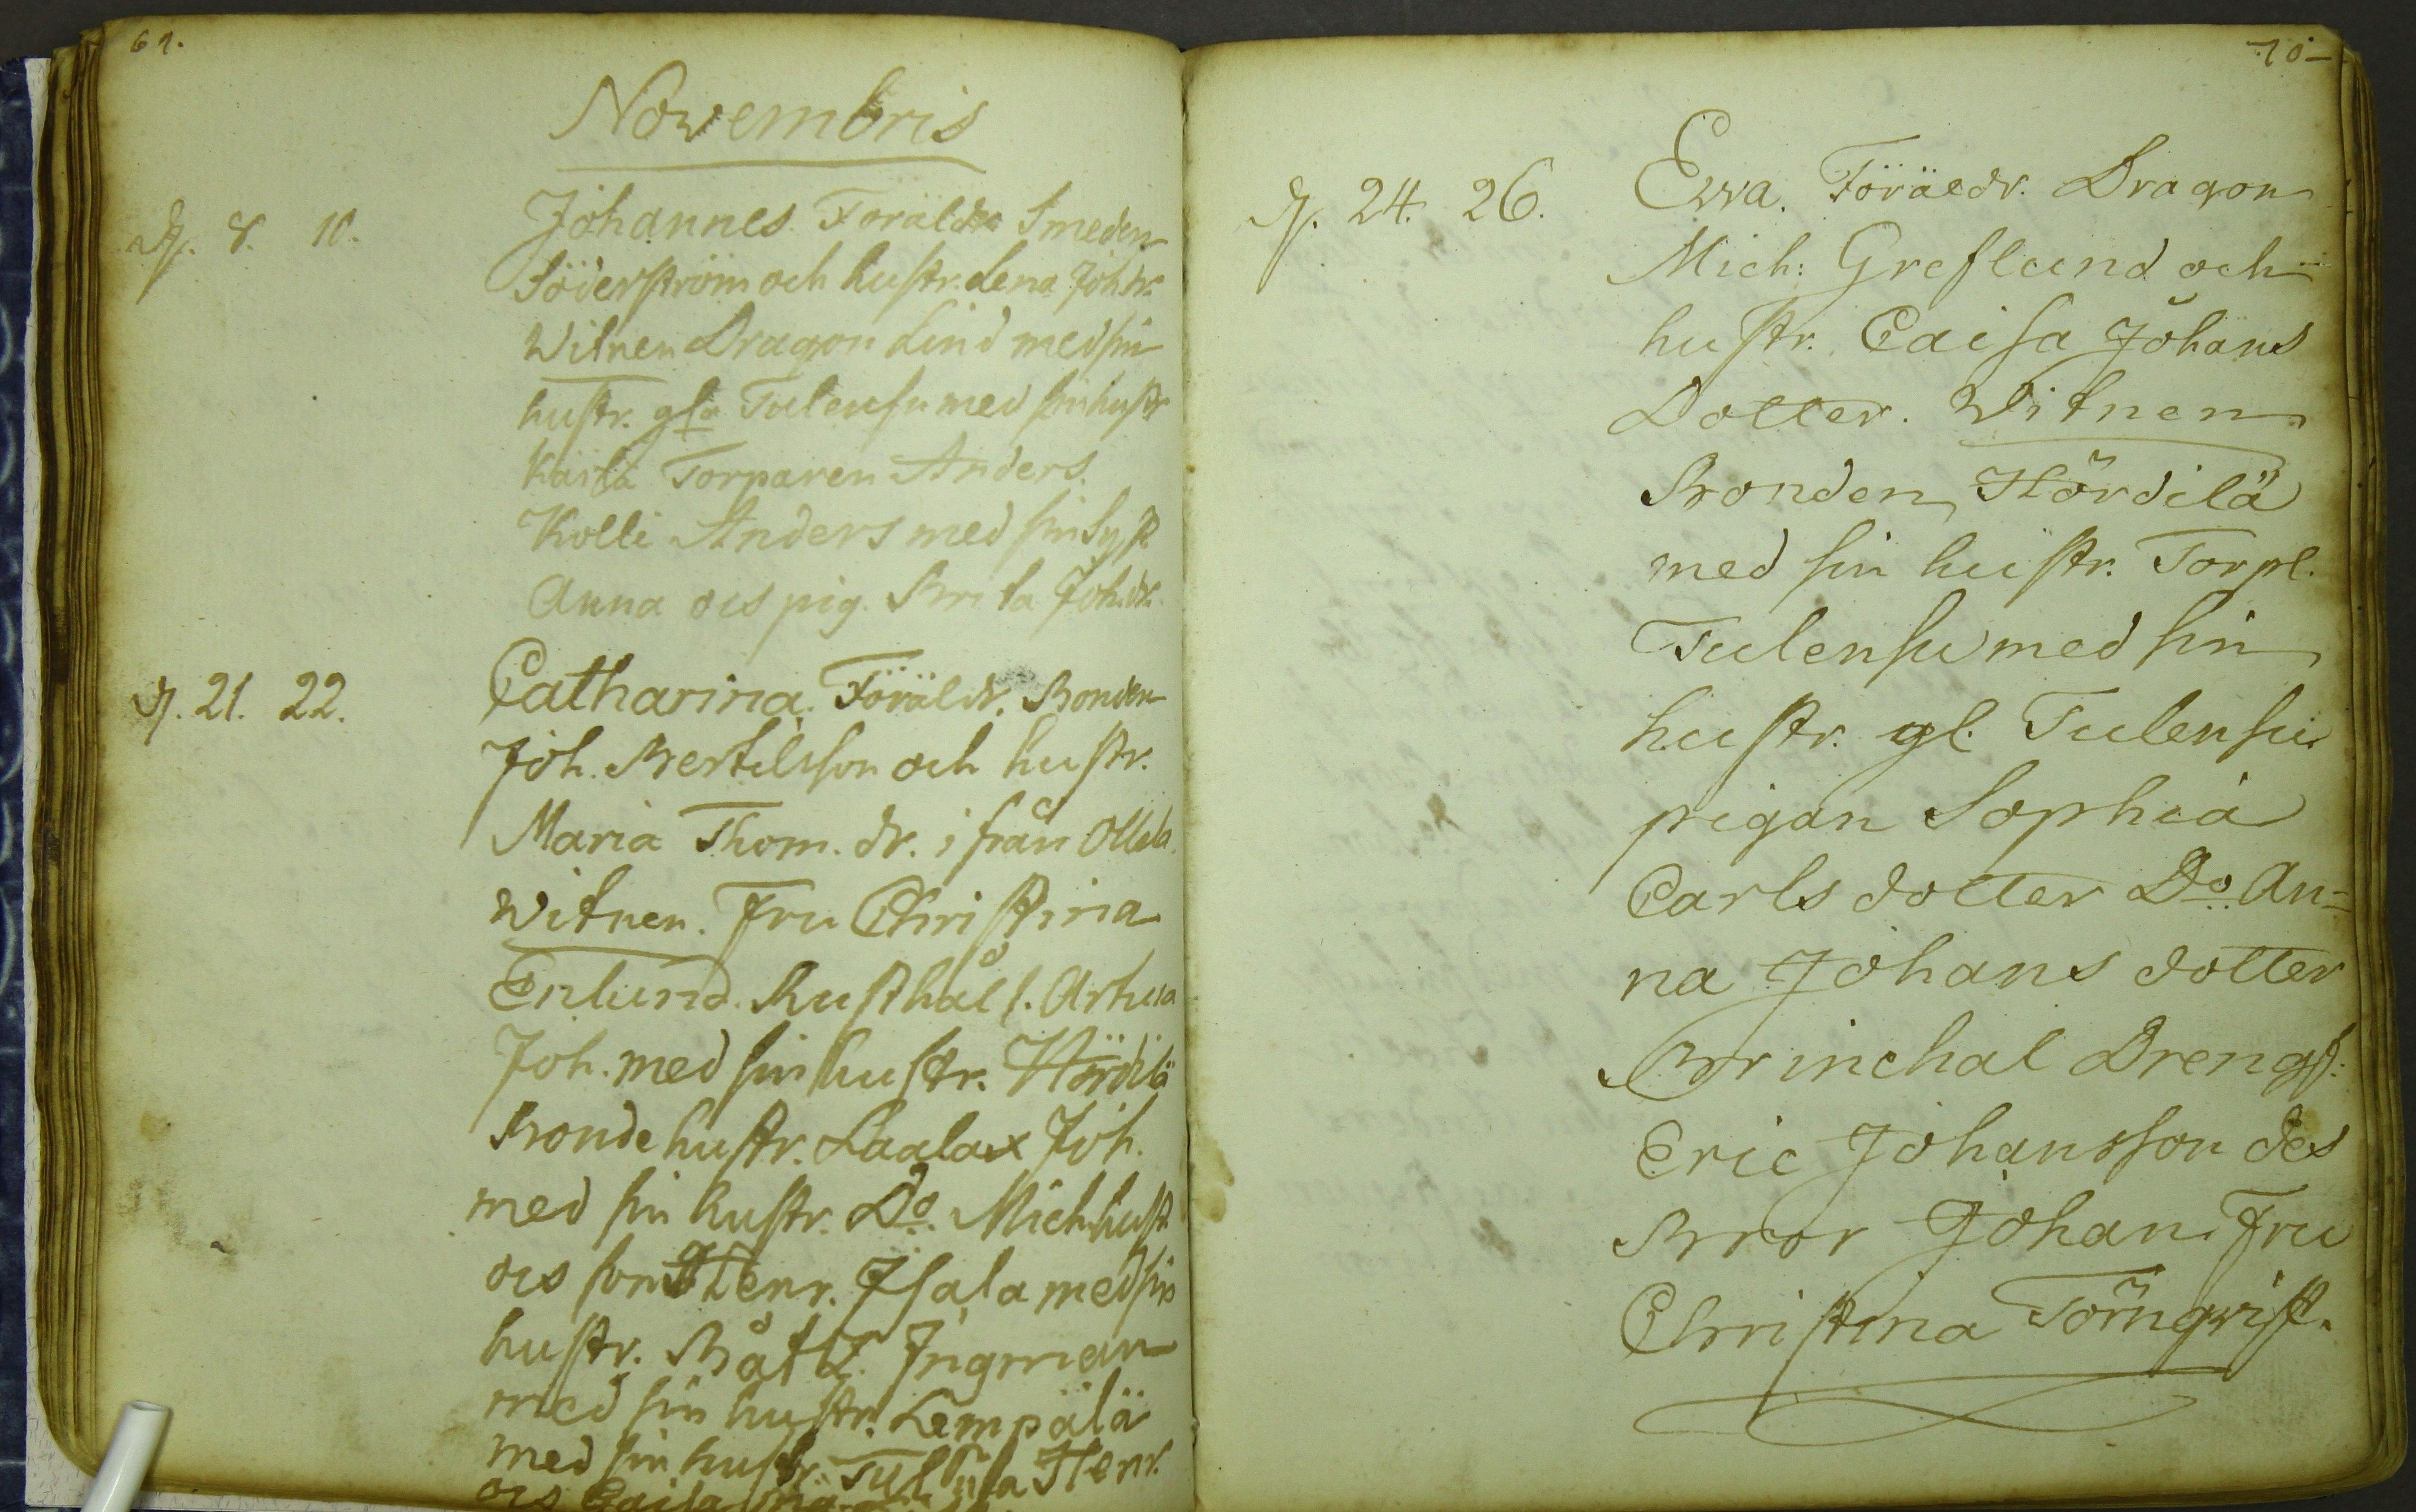 69.
Novembris
d. 8. 10. Johannes Föräldra Smeden
Söderström och hustr. Lena Joh.dr.
Witnen Dragon Lind med sin
hustr. gla Tulensu med sin hustr
Kaisa Torparen Anders.
Kolli Anders med sin Syst
Anna ocs pig. Brita Joh.dr.
d. 21. 22. Catharina. Föräldr. Bonden
Joh. Bertilsson och hustr.
Maria Thom. dr. ifrån Ollila
Witnen. Fru Christina
Enlund. Rusthåll.
Joh. med sin hustr. Hördilä
Bonde hustr. Laalax Joh.
med sin hustr. Do. Mich. hust
ocs son Henr. Isala med sin
hustr. Båtz. Ingman
med sin hustr. Lempälä
med sin hustr. Henr.
ocs Caisa
70
d. 24. 26. Ewa. Föräldr. Dragon
Mich: Greflund och
hustr. Caisa Johans
Dotter. Witnen
Bonden Hördilä
med sin hustr. Torpl.
Tulensu med sin
hustr. gl. Tulensu
pigan Sophia
Carls dotter Do. An=
na Johans dotter
Brinchal Drengs:
Eric Johansson des
Bror Johan. Fru
Christina Törnqvist.